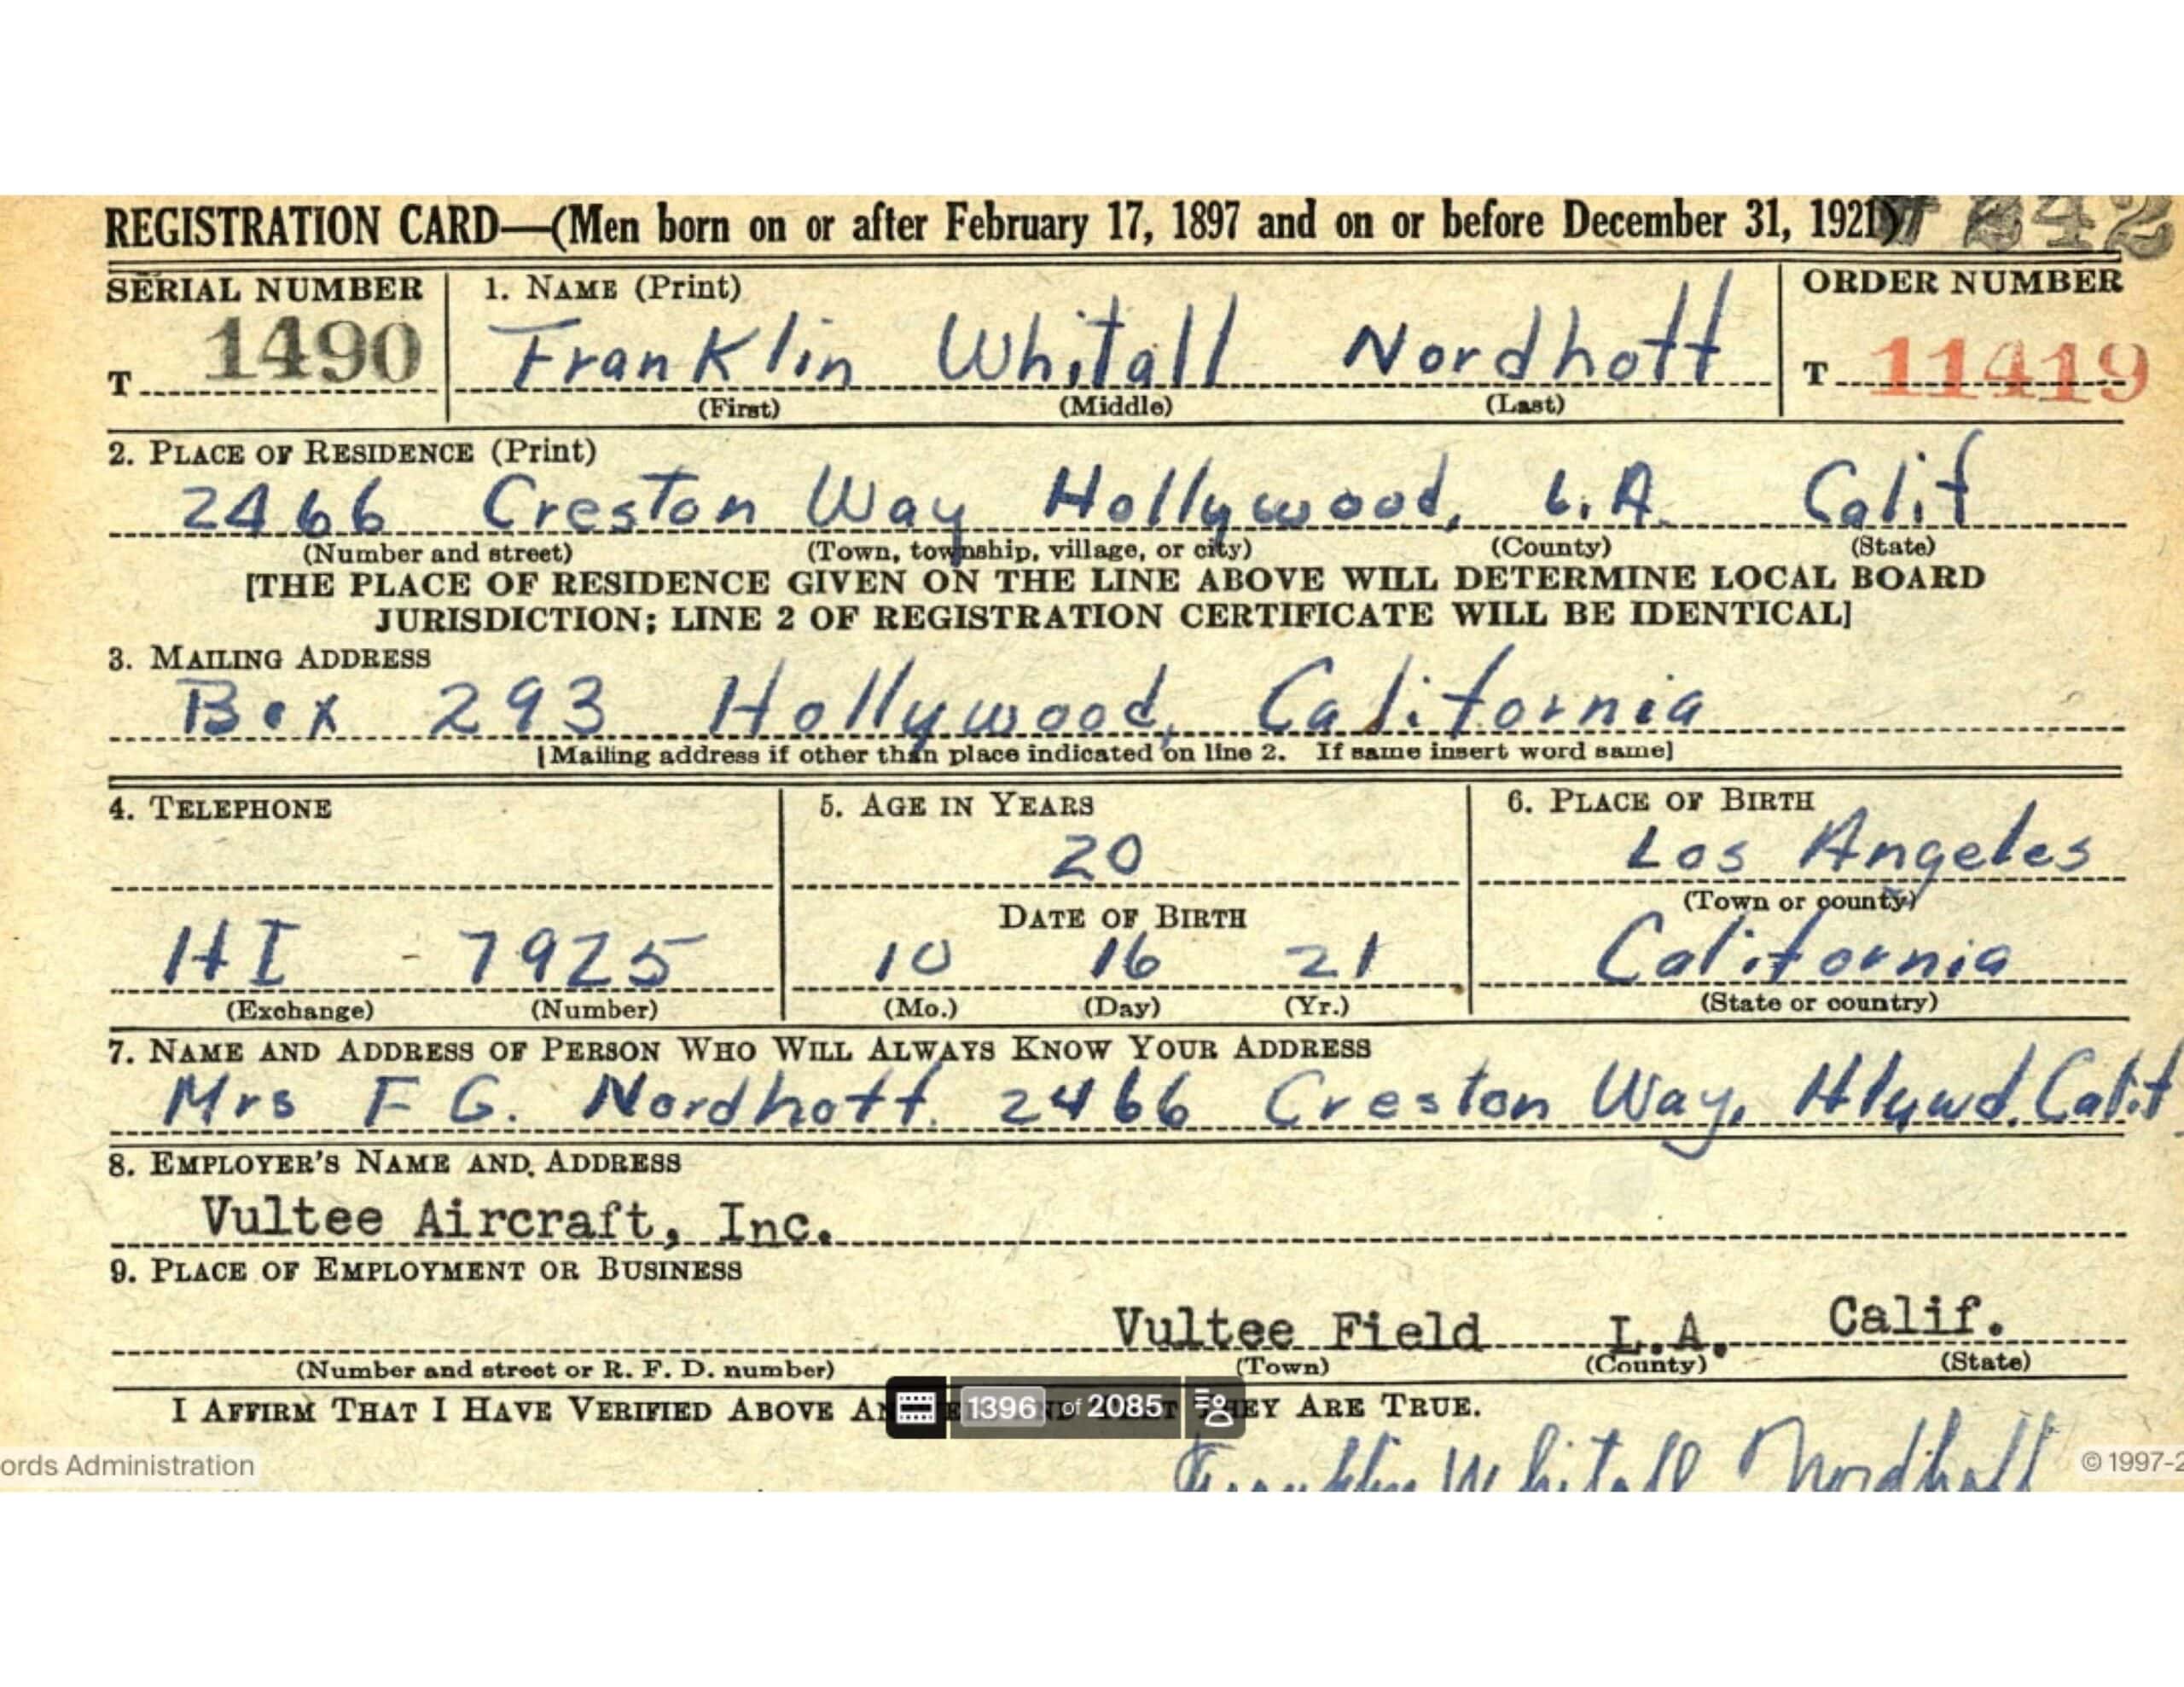 REGISTRATION CARD—(Men born on or after February 17, 1897 and on or before December 31, 1921)
SERIAL NUMBER 1. NAME (Print) ORDER NUMBER
T 1490 Franklin Whitall Nordhoff T 11419
(First) (Middle) (Last)
2. PLACE OF RESIDENCE (Print)
2466 Creston Way Hollywood, L.A. Calif
(Number and street) (Town, township, village, or city) (County) (State)
[THE PLACE OF RESIDENCE GIVEN ON THE LINE ABOVE WILL DETERMINE LOCAL BOARD
JURISDICTION; LINE 2 OF REGISTRATION CERTIFICATE WILL BE IDENTICAL]
3. MAILING ADDRESS
Box 293 Hollywood, California
[Mailing address if other than place indicated on line 2. If same insert word same]
4. TELEPHONE 5. AGE IN YEARS 6. PLACE OF BIRTH
20 Los Angeles
DATE OF BIRTH (Town or county)
HI - 7925 10 16 21 California
(Exchange) (Number) (Mo.) (Day) (Yr.) (State or country)
7. NAME AND ADDRESS OF PERSON WHO WILL ALWAYS KNOW YOUR ADDRESS
Mrs F G. Nordhoff. 2466 Creston Way, Hlywd. Calif
8. EMPLOYER'S NAME AND ADDRESS
Vultee Aircraft, Inc.
9. PLACE OF EMPLOYMENT OR BUSINESS
Vultee Field L.A. Calif.
(Number and street or R. F. D. number) (Town) (County) (State)
I AFFIRM THAT I HAVE VERIFIED ABOVE ARE TRUE.
1396 of 2085
Franklin Whitall Nordhoff
ords Administration © 1997-2